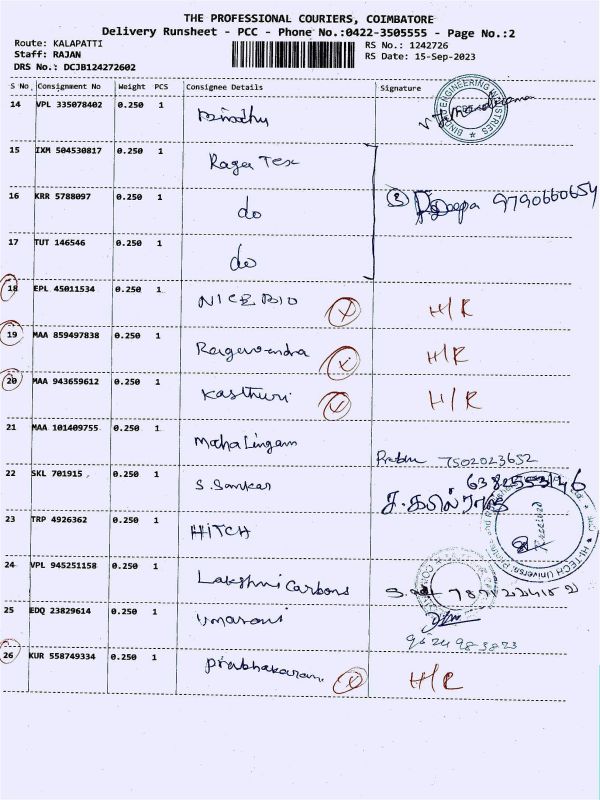 THE PROFESSIONAL COURIERS, COIMBATORE
Delivery Runsheet - PCC - Phone No.:0422-3505555 - Page No.:2
Route: KALAPATTI RS No.: 1242726
Staff: RAJAN RS Date: 15-Sep-2023
DRS No.: DCJB124272602
S No Consignment No Weight PCS Consignee Details Signature
14 VPL 335078402 0.250 1
15 IXM 504530817 0.250 1 Raga Tex
16 KRR 5788097 0.250 1 do Deepa 9790660654
17 TUT 146546 0.250 1 do
18 EPL 45011534 0.250 1 NICE BIO X H/R
19 MAA 859497838 0.250 1 Ragavendra X H/R
20 MAA 943659612 0.250 1 Kasthuri X H/R
21 MAA 101409755 1 MahaLingam Prabhu 7502023652
22 SKL 701915 0.250 1 S. Sankar
23 TRP 4926362 0.250 1 HITCH
24 VPL 945251158 0.250 1 Lakshmi Carbons
25 EDQ 23829614 0.250 1
26 KUR 558749334 0.250 1 Prabhakaran X H/R